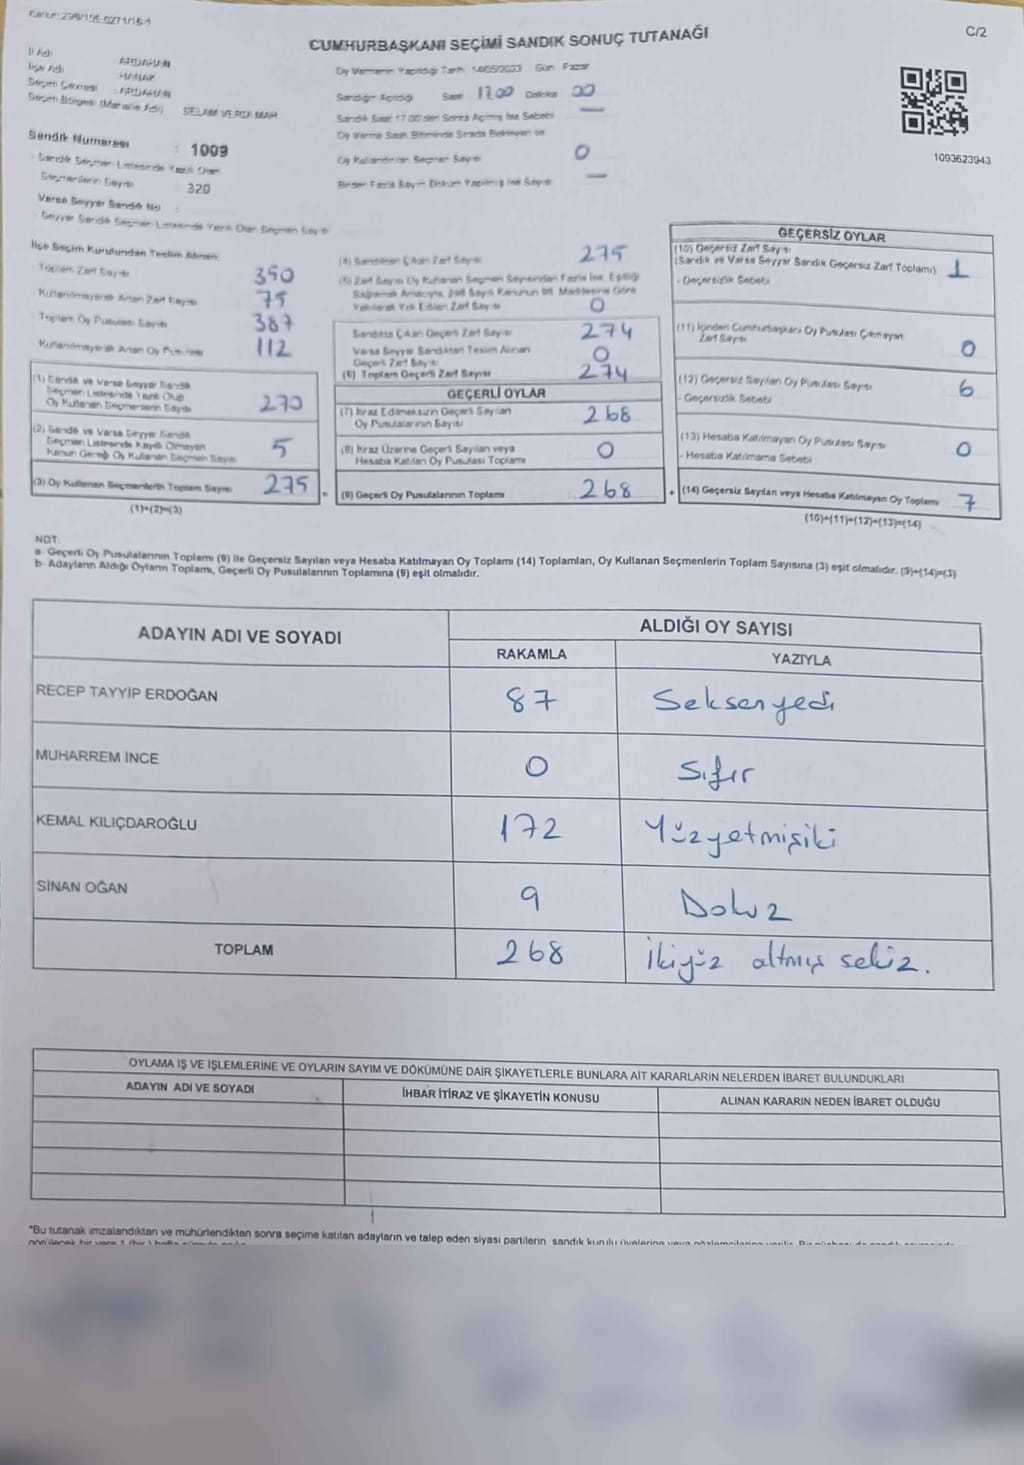 C/2
CUMHURBAŞKANI SEÇİMİ SANDIK SONUÇ TUTANAĞI
İl Adı : ARDAHAN
İlçe Adı : HANAK
Seçim Çevresi : ARDAHAN
Seçim Bölgesi (Mahalle Adı) SELAMVERDİ MAH.
Sandık Numarası : 1009
Sandık Seçmen Listesinde Yazılı Olan
Seçmenlerin Sayısı 320
Varsa Seyyar Sandık No :
Seyyar Sandık Seçmen Listesinde Yazılı Olan Seçmen Sayısı
Oy Vermenin Yapıldığı Tarih 14/05/2023 Gün Pazar
Sandığın Açıldığı Saat 17.00 Dakika 00
Sandık Saat 17.00'den Sonra Açılmış İse Sebebi —
Oy Verme Saati Bitiminde Sırada Bekleyen ve
Oy Kullandırılan Seçmen Sayısı 0
Birden Fazla Sayım Döküm Yapılmış İse Sayısı —
1093623943
İlçe Seçim Kurulundan Teslim Alınan:
Toplam Zarf Sayısı 350
Kullanılmayarak Artan Zarf Sayısı 75
Toplam Oy Pusulası Sayısı 387
Kullanılmayarak Artan Oy Pusulası 112
(1) Sandık ve Varsa Seyyar Sandık
Seçmen Listesinde Yazılı Olup
Oy Kullanan Seçmenlerin Sayısı 270
(2) Sandık ve Varsa Seyyar Sandık
Seçmen Listesinde Kayıtlı Olmayan
Kanun Gereği Oy Kullanan Seçmen Sayısı 5
(3) Oy Kullanan Seçmenlerin Toplam Sayısı 275
(1)+(2)=(3)
(4) Sandıktan Çıkan Zarf Sayısı 275
(5) Zarf Sayısı Oy Kullanan Seçmen Sayısından Fazla İse, Eşitliği
Sağlamak Amacıyla, 298 Sayılı Kanunun 98. Maddesine Göre
Yakılarak Yok Edilen Zarf Sayısı 0
Sandıkta Çıkan Geçerli Zarf Sayısı 274
Varsa Seyyar Sandıktan Teslim Alınan
Geçerli Zarf Sayısı 0
(6) Toplam Geçerli Zarf Sayısı 274
GEÇERLİ OYLAR
(7) İtiraz Edilmeksizin Geçerli Sayılan
Oy Pusulalarının Sayısı 268
(8) İtiraz Üzerine Geçerli Sayılan veya
Hesaba Katılan Oy Pusulası Toplamı 0
(9) Geçerli Oy Pusulalarının Toplamı 268
GEÇERSİZ OYLAR
(10) Geçersiz Zarf Sayısı
(Sandık ve Varsa Seyyar Sandık Geçersiz Zarf Toplamı) 1
- Geçersizlik Sebebi
(11) İçinden Cumhurbaşkanı Oy Pusulası Çıkmayan
Zarf Sayısı 0
(12) Geçersiz Sayılan Oy Pusulası Sayısı 6
- Geçersizlik Sebebi
(13) Hesaba Katılmayan Oy Pusulası Sayısı 0
- Hesaba Katılmama Sebebi
(14) Geçersiz Sayılan veya Hesaba Katılmayan Oy Toplamı 7
(10)+(11)+(12)+(13)=(14)
NOT:
a- Geçerli Oy Pusulalarının Toplamı (9) ile Geçersiz Sayılan veya Hesaba Katılmayan Oy Toplamı (14) Toplamları, Oy Kullanan Seçmenlerin Toplam Sayısına (3) eşit olmalıdır. (9)+(14)=(3)
b- Adayların Aldığı Oyların Toplamı, Geçerli Oy Pusulalarının Toplamına (9) eşit olmalıdır.
ADAYIN ADI VE SOYADI
ALDIĞI OY SAYISI
RAKAMLA YAZIYLA
RECEP TAYYİP ERDOĞAN 87 Seksenyedi
MUHARREM İNCE 0 Sıfır
KEMAL KILIÇDAROĞLU 172 Yüzyetmişiki
SİNAN OĞAN 9 Dokuz
TOPLAM 268 İkiyüz altmış sekiz.
OYLAMA İŞ VE İŞLEMLERİNE VE OYLARIN SAYIM VE DÖKÜMÜNE DAİR ŞİKAYETLERLE BUNLARA AİT KARARLARIN NELERDEN İBARET BULUNDUKLARI
ADAYIN ADI VE SOYADI İHBAR İTİRAZ VE ŞİKAYETİN KONUSU ALINAN KARARIN NEDEN İBARET OLDUĞU
*Bu tutanak imzalandıktan ve mühürlendikten sonra seçime katılan adayların ve talep eden siyasi partilerin sandık kurulu üyelerine veya gözlemcilerine verilir.